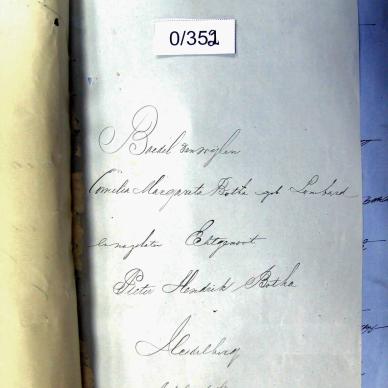 0/352
Boedel van wijlen
Cornelia Margareta Botha geb Lombard
en nagelaten Echtgenoot
Pieter Hendrik Botha
Heidelberg